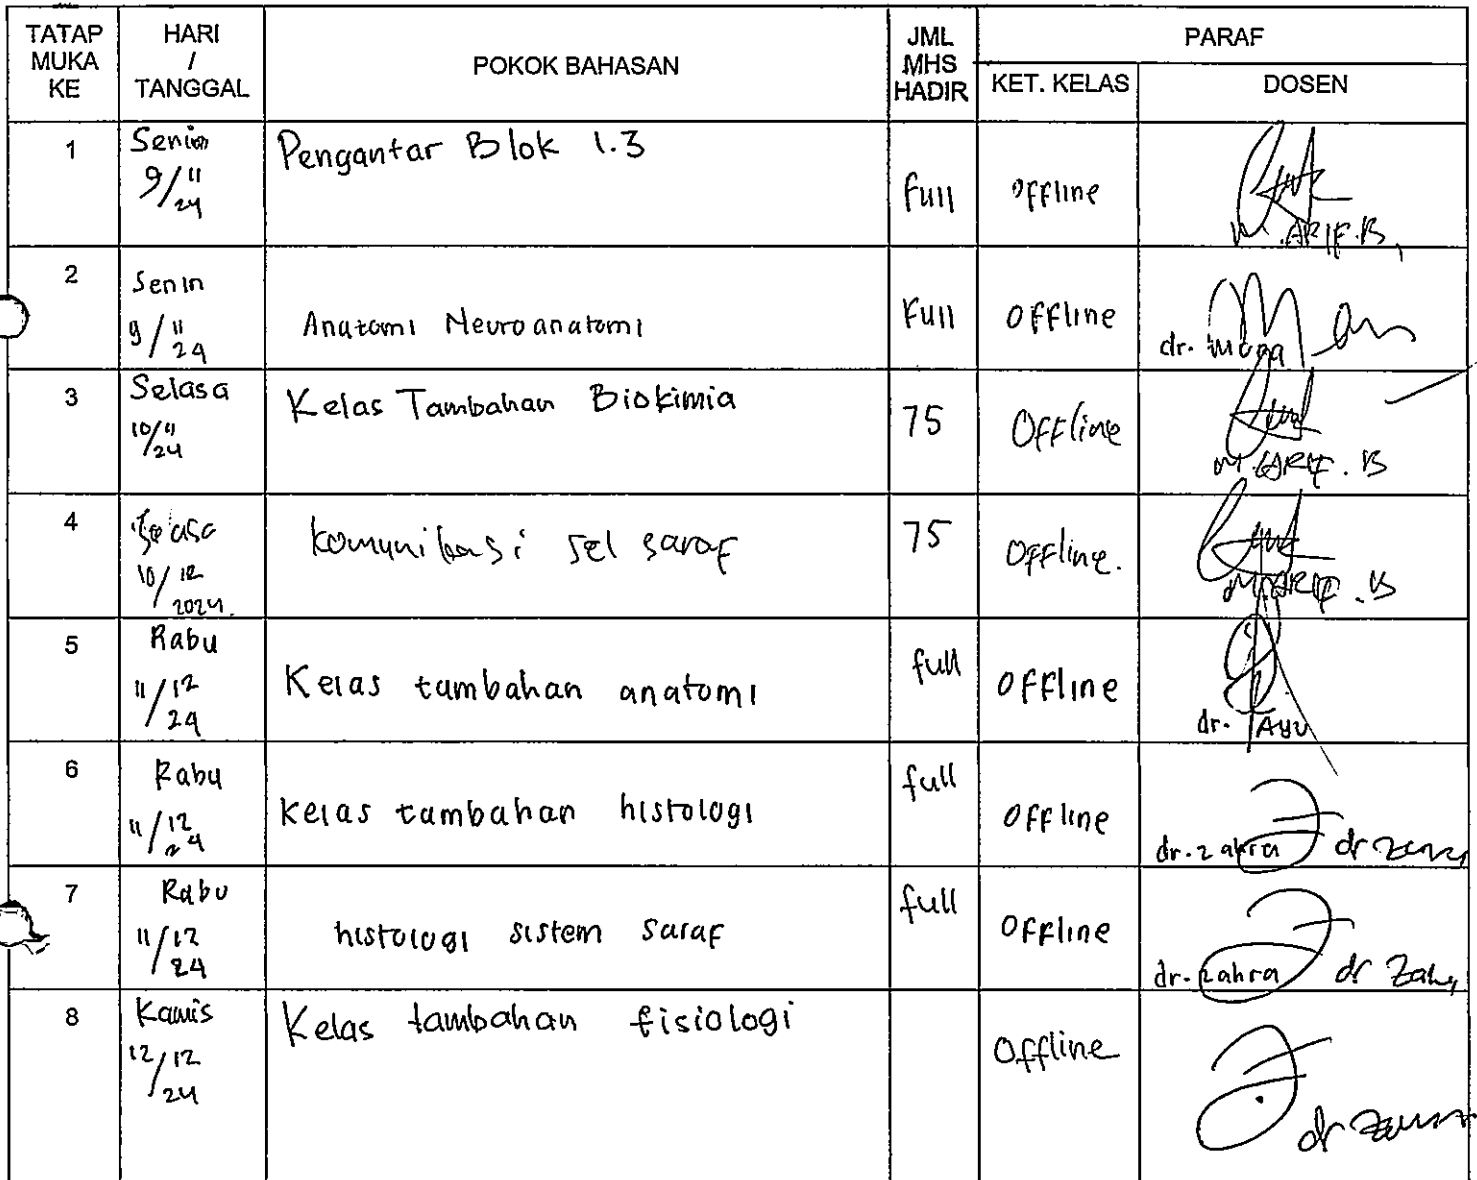 TATAP MUKA KE
HARI / TANGGAL
POKOK BAHASAN
JML MHS HADIR
PARAF
KET. KELAS
DOSEN
1 Senin 9/11 24 Pengantar Blok 1.3 Full Offline M. ARIF. B
2 Senin 9/11 24 Anatomi Neuroanatomi Full Offline dr.
3 Selasa 10/11 24 Kelas Tambahan Biokimia 75 Offline M. ARIF. B
4 Selasa 10/12 2024. Komunikasi sel saraf 75 Offline. M. ARIF. B
5 Rabu 11/12 24 Kelas tambahan anatomi full Offline dr. Ayu
6 Rabu 11/12 24 Kelas tambahan histologi full Offline dr. zahra dr
7 Rabu 11/12 24 histologi sistem saraf full Offline dr. Zahra dr
8 Kamis 12/12 24 Kelas tambahan fisiologi Offline dr